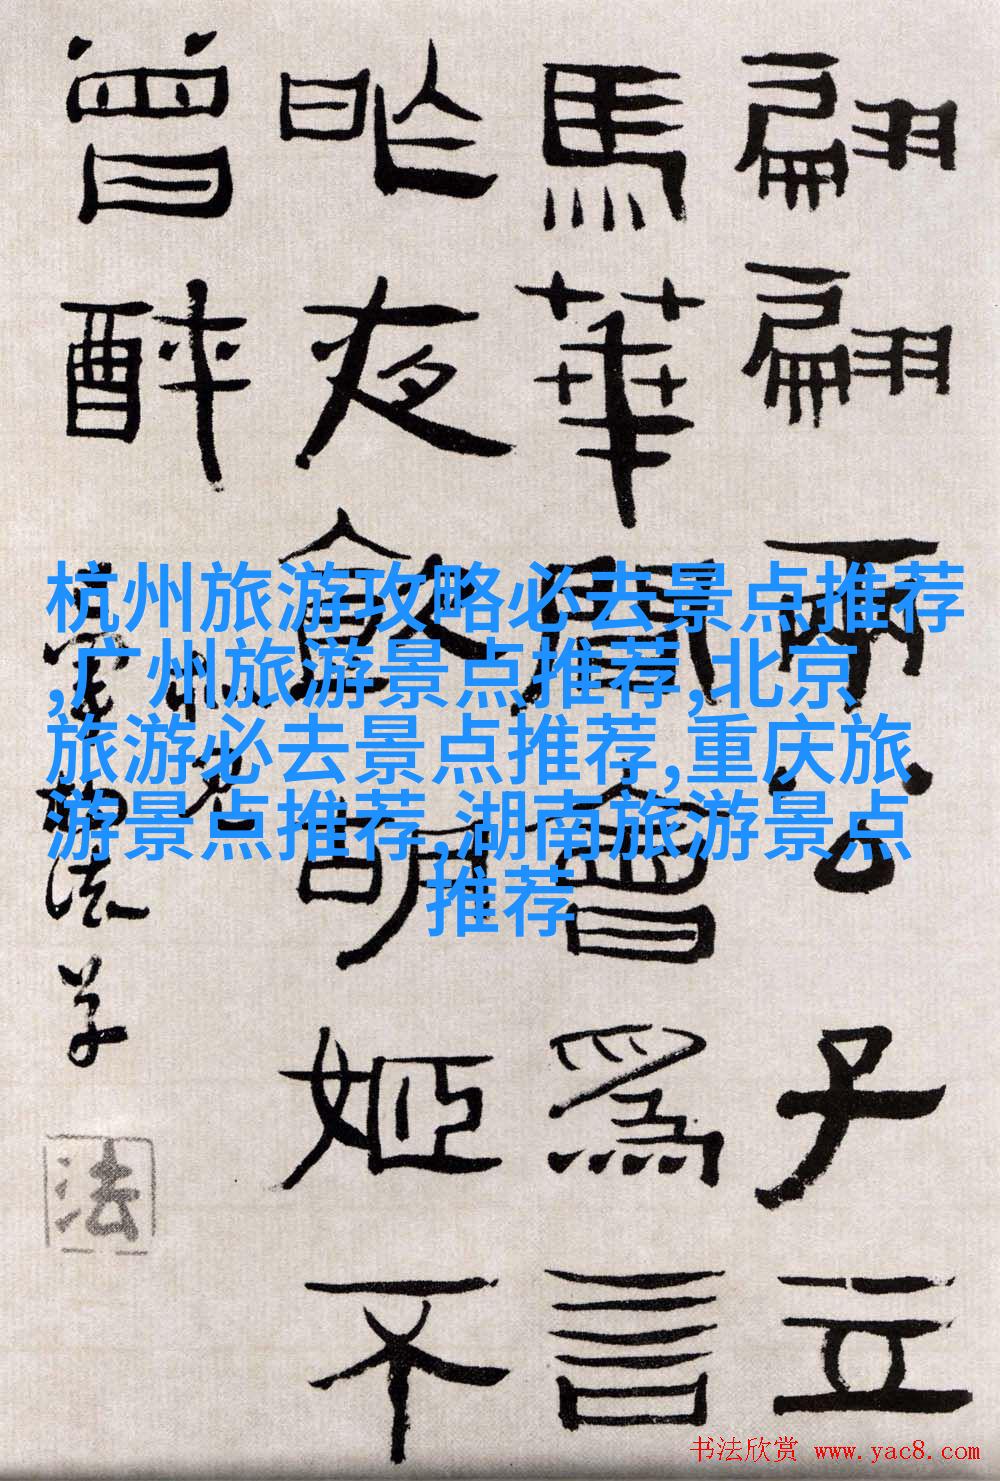 翩翩兩公子立
馬華會爲言
昨夜飲胡姬不
曾醉
杭州旅游攻略必去景点推荐
,广州旅游景点推荐,北京
旅游必去景点推荐,重庆旅
游景点推荐,湖南旅游景点
推荐
法
书法欣赏 www.yac8.com